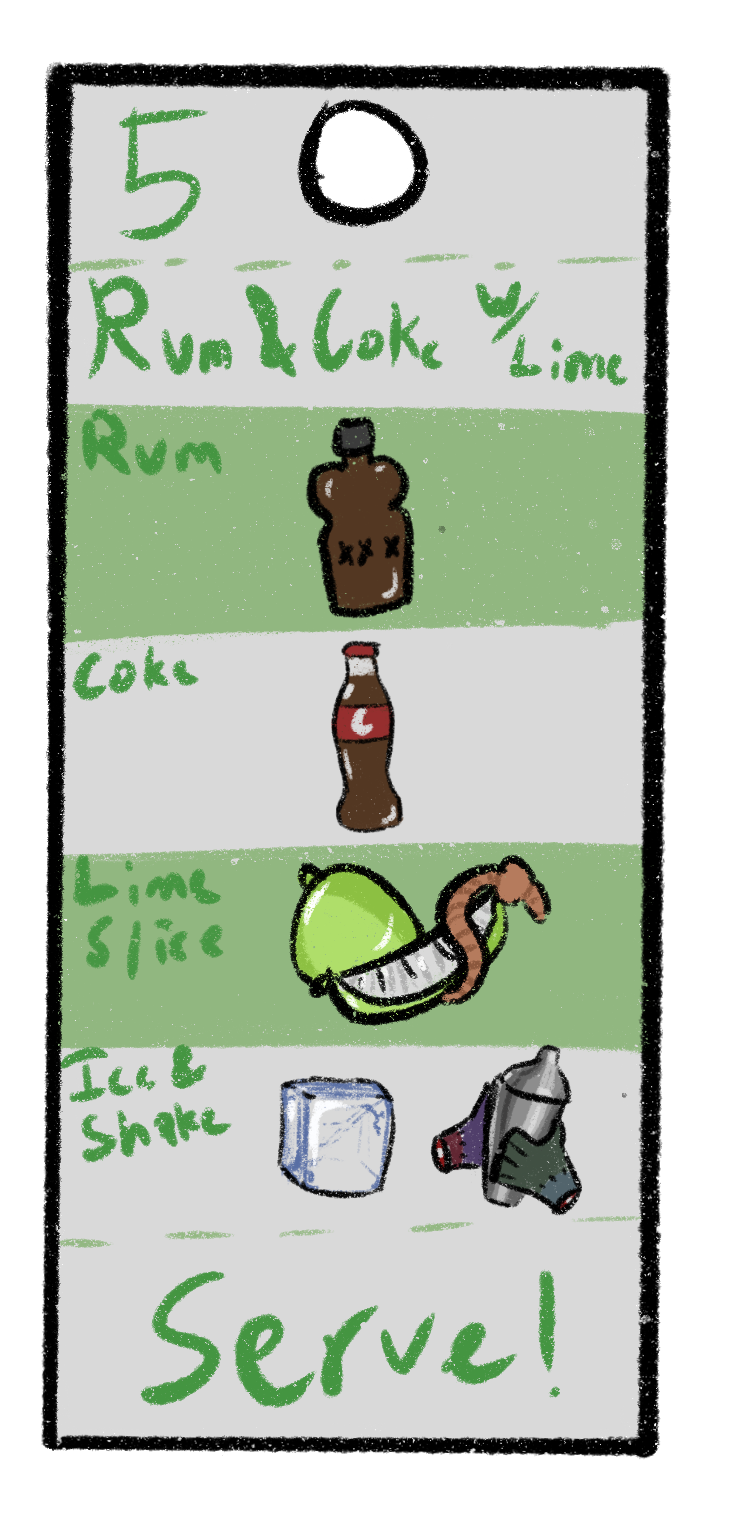 5
Rum & Coke w/ Lime
Rum
xxx
Coke
C
Lime
Slice
Ice &
Shake
Serve!